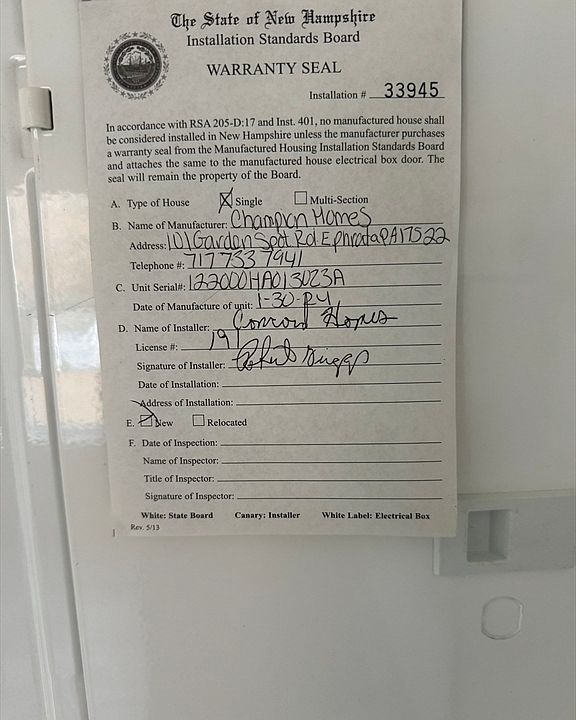 The State of New Hampshire
Installation Standards Board
WARRANTY SEAL
Installation # 33945
In accordance with RSA 205-D:17 and Inst. 401, no manufactured house shall
be considered installed in New Hampshire unless the manufacturer purchases
a warranty seal from the Manufactured Housing Installation Standards Board
and attaches the same to the manufactured house electrical box door. The
seal will remain the property of the Board.
A. Type of House Single Multi-Section
B. Name of Manufacturer: Champion Homes
Address: 101 Garden Spot Rd Ephrata PA 17522
Telephone #: 717 733 7941
C. Unit Serial#: 122000HA013023A
Date of Manufacture of unit: 1-30-
D. Name of Installer:
License #: 191
Signature of Installer:
Date of Installation:
Address of Installation:
E. New Relocated
F. Date of Inspection:
Name of Inspector:
Title of Inspector:
Signature of Inspector:
White: State Board Canary: Installer White Label: Electrical Box
Rev. 5/13